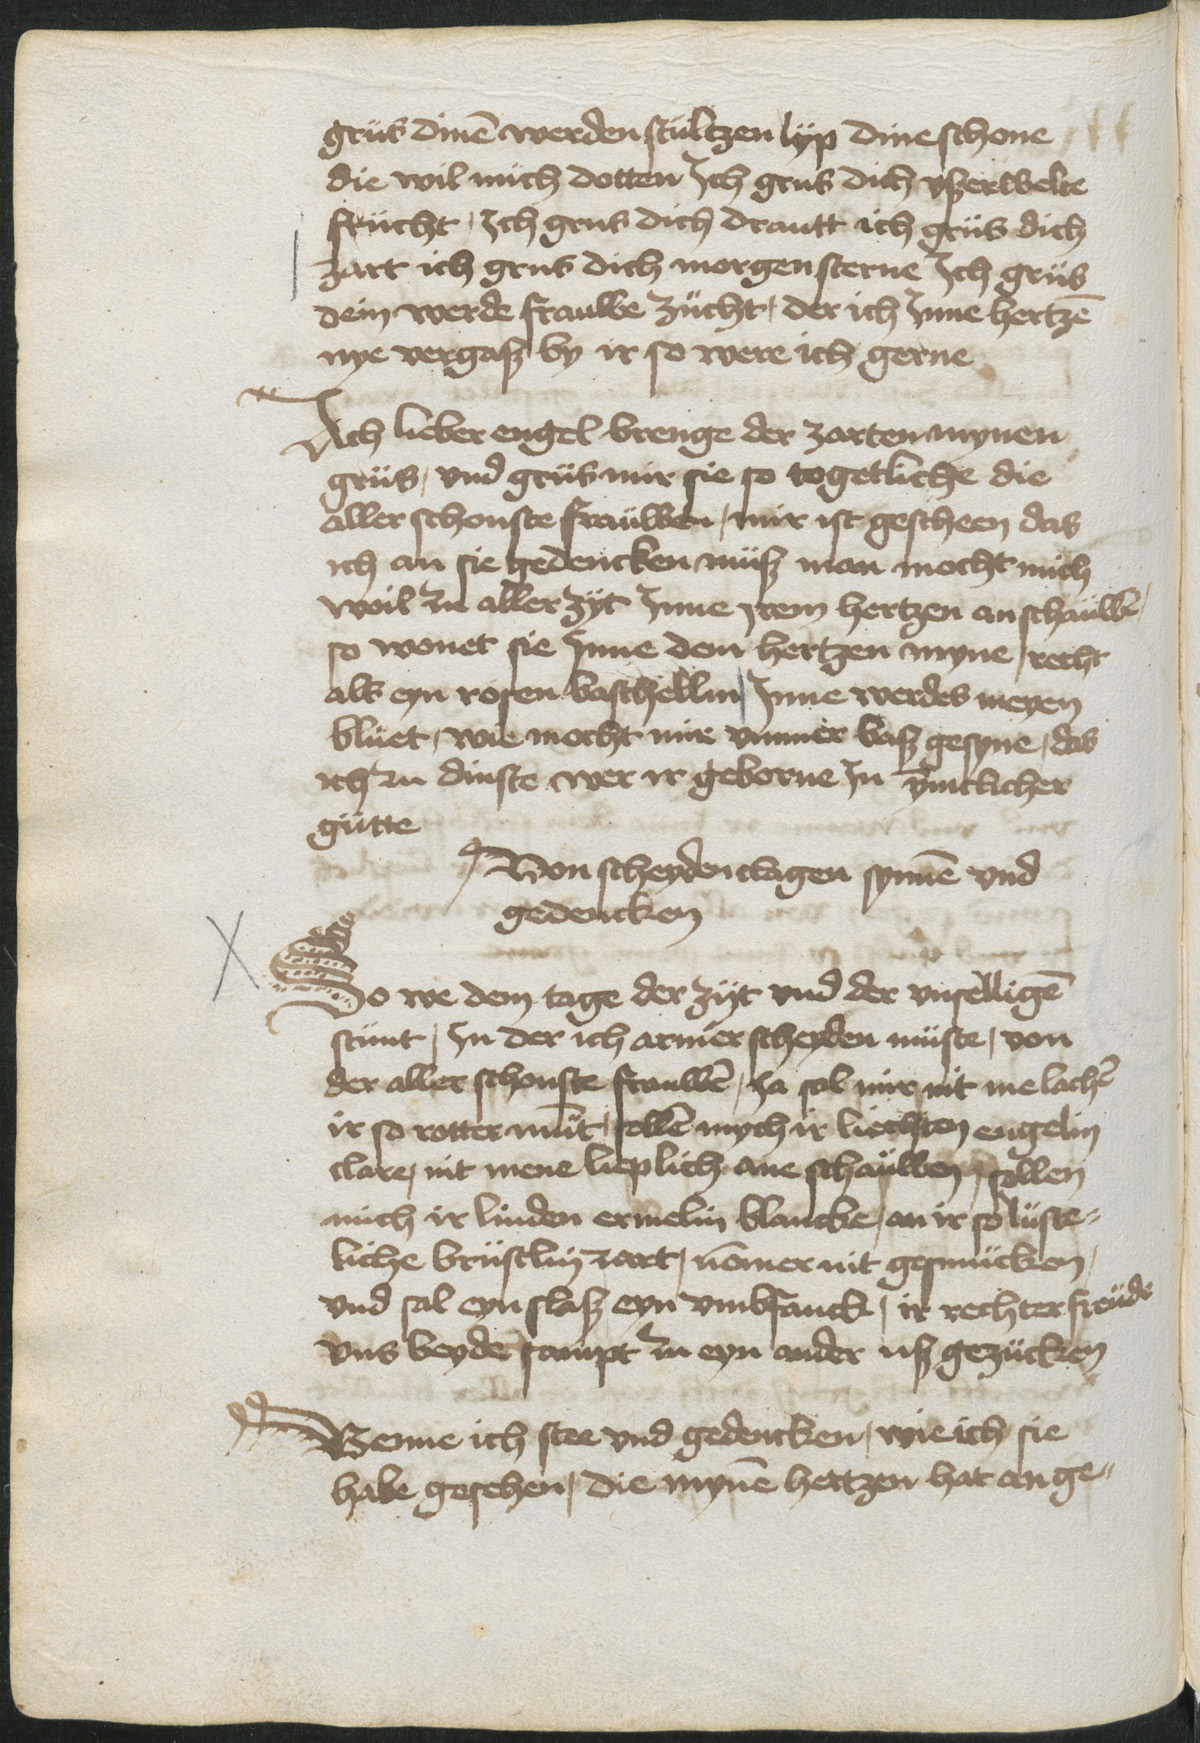 grüs dinē werden stültzen lyp dine schone
die wil mich dotten Ich grus dich vßerwelte
frücht, Ich grus dich drautt ich grüs dich
zart ich grus dich morgensterne Ich grüs
dein werde frauwe zücht, der ich Inne hertzē
nye vergaß by ir so were ich gerne
Ach lieber engel brenge der zarten mynen
grüs, vnd grüs mir sie so togetliche die
aller schonste fraüwen, mir ist gescheen das
ich an sie gedencken müß man mocht mich
woil zu aller zyt Inne irem hertzen an schaüwē,
so wonet sie Inne dem hertzen myne, recht
als eyn rosen baschellin Inne werdes meyen
blüet, wie mocht mir vmmer baß gesyne, das
ich zu dinste wer ir geborne In
gütte
Von scheyden clagen synnē vnd
gedencken
So we dem tage der zyt vnd der vnselligē
stünt, In der ich armer scheyden müste, von
der aller schonste frauwē, Ja sol mir nit me lachē
ir so rotter münt, sollē mych ir liechten eugelin
clare, nit mene lieplich ane schaüwen, sollen
mich ir linden ermelin blancke, an ir so lüste„
liche brüstlin zart, nōmer nit gesmücken,
vnd sal eyn slaß eyn vmbfanck, ir rechter freüde
vns beyde sampt zu eyn ander uß gezücken
Wenne ich stee vnd gedencken, wie ich sie
habe gesehen, die mynē hertzen hat an ge„